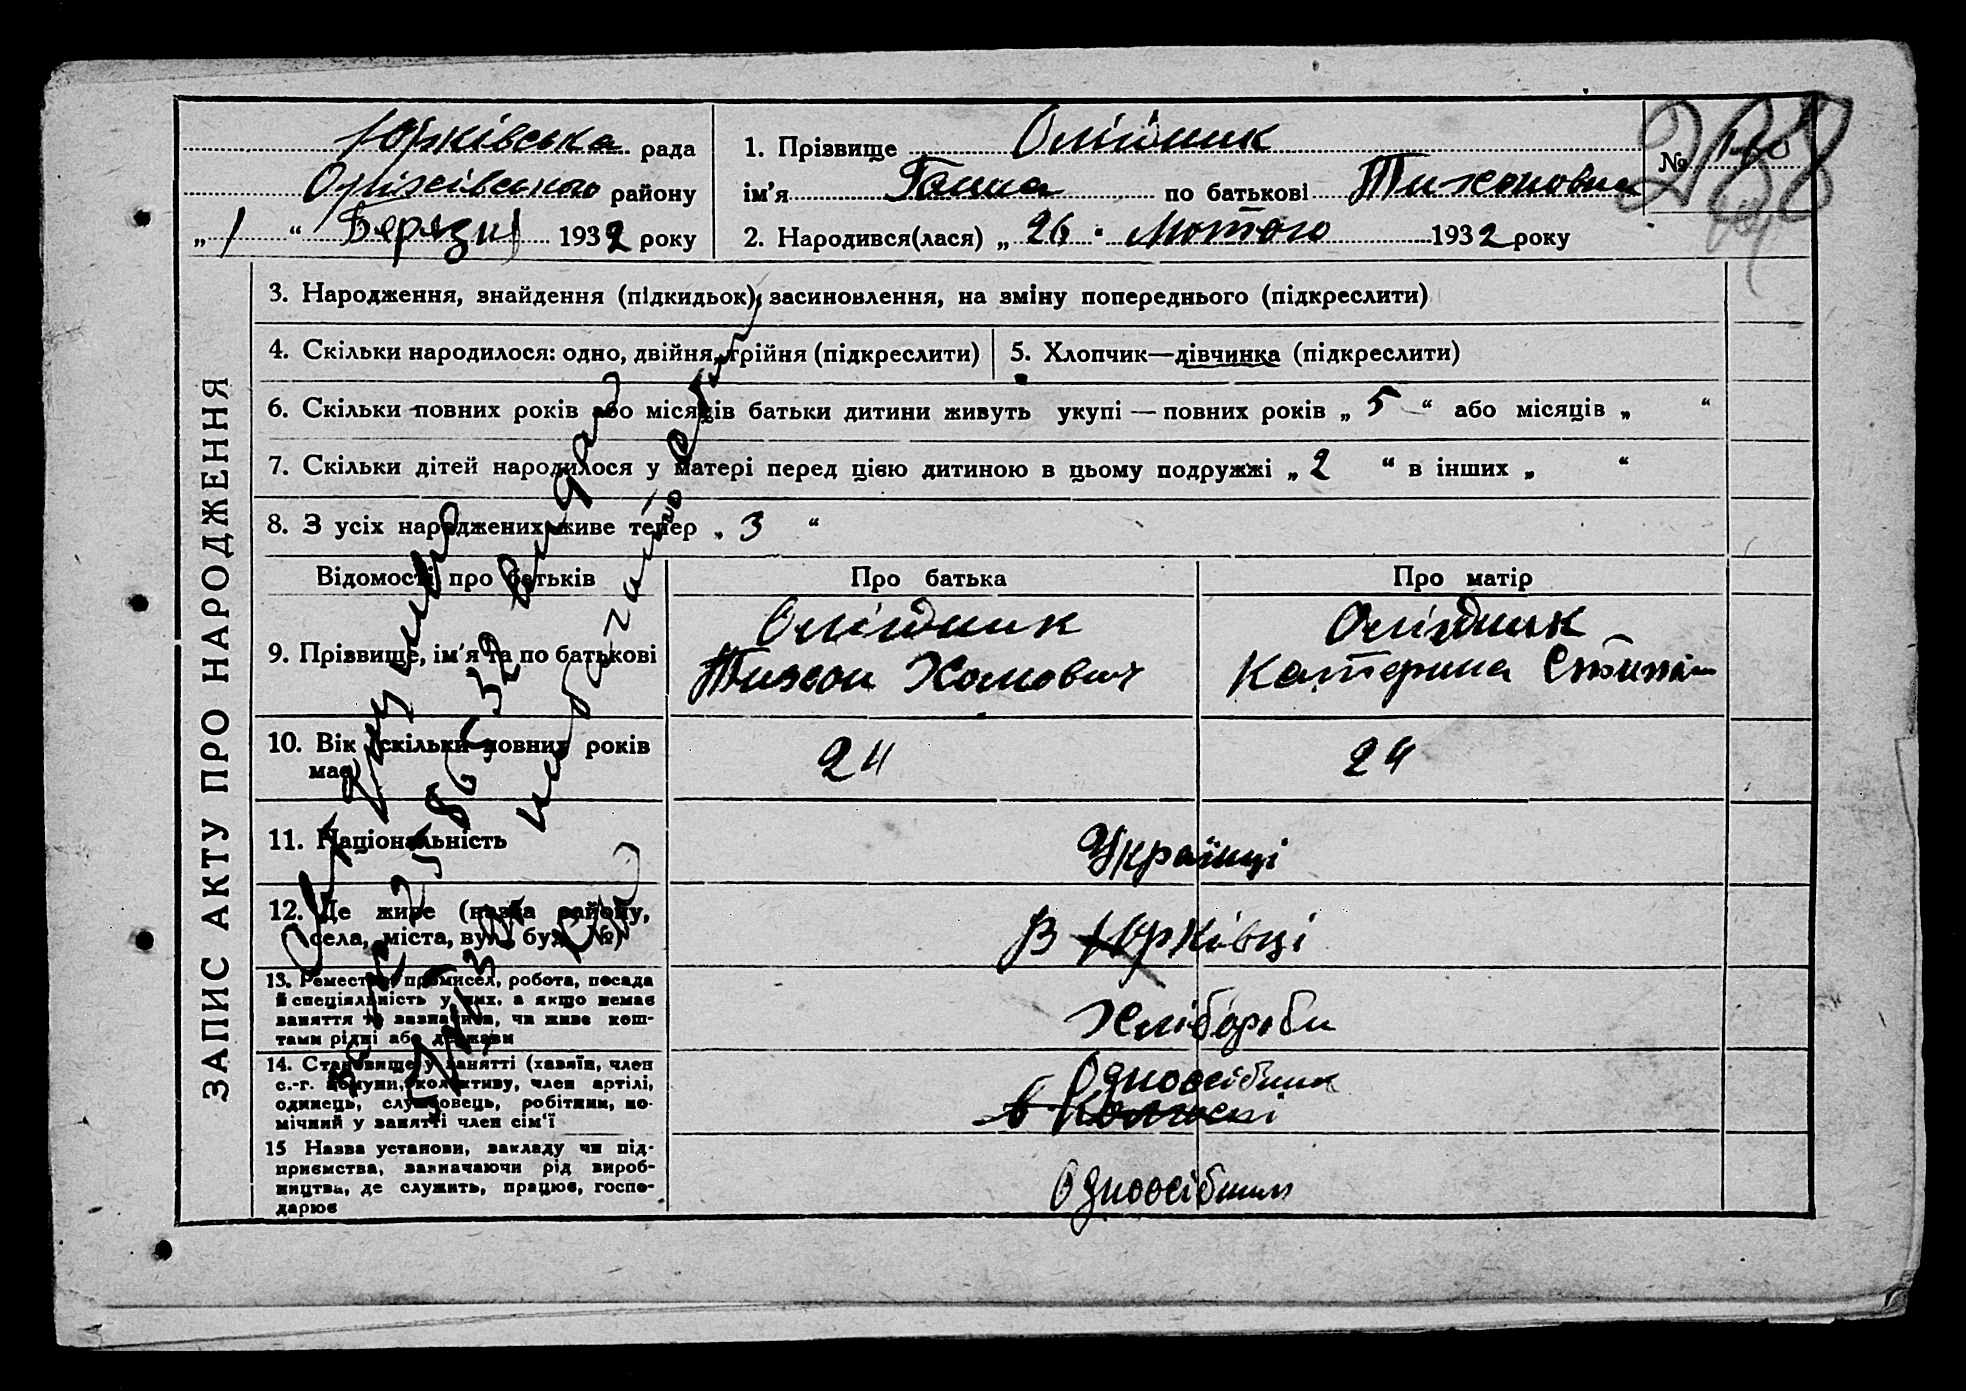 Юрківська рада
Оржівського району
„ 1 “ Березня 1932 року
1. Прізвище Олійник
ім'я Ганна по батькові Тихоновна
2. Народився(лася) „ 26 “ Лютого 1932 року
№
288
ЗАПИС АКТУ ПРО НАРОДЖЕННЯ
3. Народження, знайдення (підкидьок), засиновлення, на зміну попереднього (підкреслити)
4. Скільки народилося: одно, двійня, трійня (підкреслити)
5. Хлопчик—дівчинка (підкреслити)
6. Скільки повних років або місяців батьки дитини живуть укупі — повних років „ 5 “ або місяців „ “
7. Скільки дітей народилося у матері перед цією дитиною в цьому подружжі „ 2 “ в інших „ “
8. З усіх народжених живе тепер „ 3 “
Відомості про батьків
Про батька
Про матір
9. Прізвище, ім'я та по батькові
Олійник
Тихон Хомович
Олійник
Катерина
10. Вік (скільки повних років
має)
24
24
11. Національність
Українці
12. Де живе (назва району,
села, міста, вул., буд. №)
В Юрківці
13. Ремество, промисел, робота, посада
й спеціяльність у них, а якщо немає
заняття то зазначити, чи живе кош-
тами рідні або держави
Хлібороби
14. Становище у занятті (хазяїн, член
с.-г. комуни, колективу, член артілі,
одинець, службовець, робітник, по-
мічний у занятті член сім'ї
Одноосібники
в колгоспі
15 Назва установи, закладу чи під-
приємства, зазначаючи рід вироб-
ництва, де служить, працює, госпо-
дарює
Одноосібники